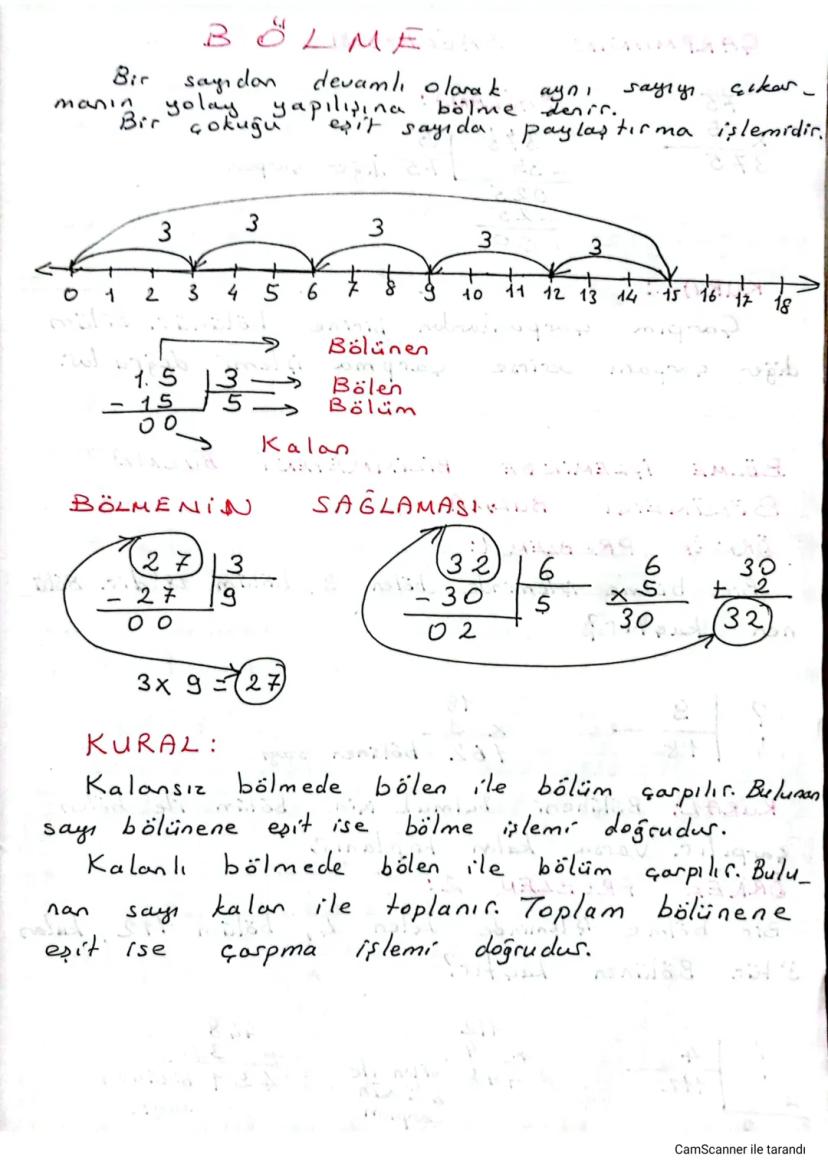 BÖLME
Bir sayıdan devamlı olarak aynı sayıyı çıkar_
manın yolay yapılışına bölme denir.
Bir çokuğu eşit sayıda paylaştırma işlemidir.
3 3 3 3 3
0 1 2 3 4 5 6 7 8 9 10 11 12 13 14 15 16 17 18
Bölünen
1.5 3 Bölen
- 15 5 Bölüm
00
Kalan
BÖLMENİN SAĞLAMASI:
27 3
- 27 9
00
3x 9 = 27
32 6
- 30 5
02
6
x 5
30
30
+ 2
32
KURAL:
Kalansız bölmede bölen ile bölüm çarpılır. Bulunan
sayı bölünene eşit ise bölme işlemi doğrudur.
Kalanlı bölmede bölen ile bölüm çarpılır. Bulu_
nan sayı kalan ile toplanır. Toplam bölünene
eşit ise çarpma işlemi doğrudur.
CamScanner ile tarandı